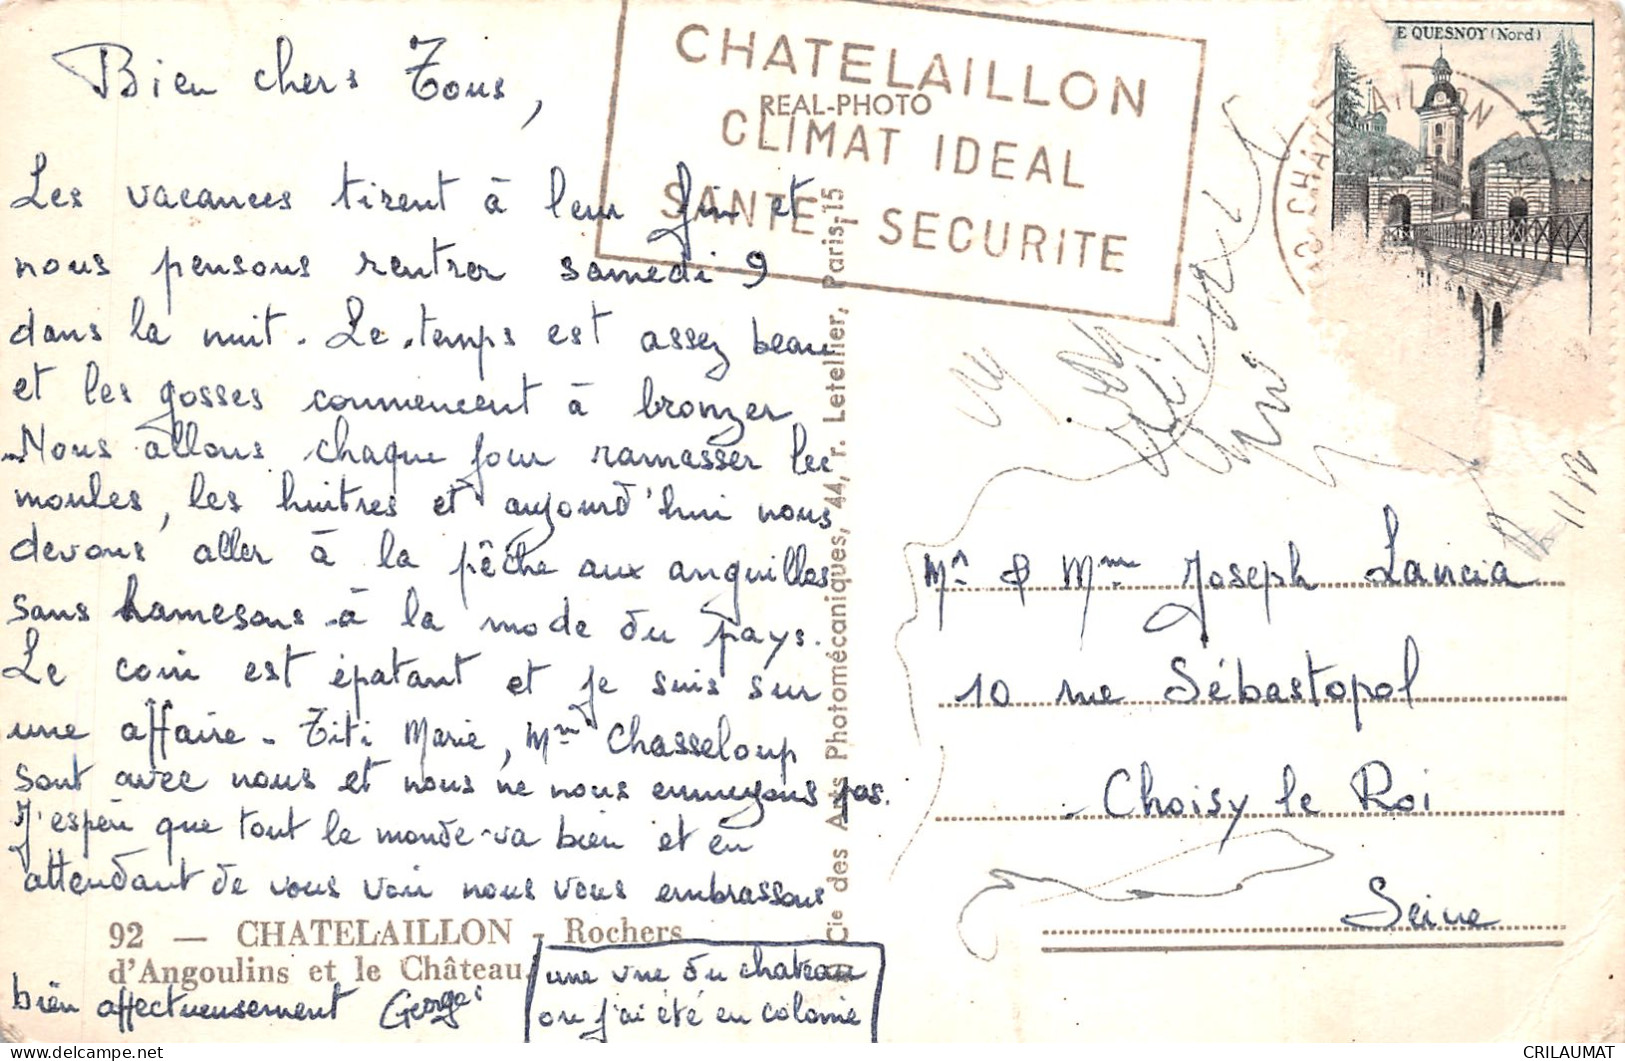 Bien chers Tous,
Les vacances tirent à leur fin et
nous pensons rentrer samedi 9
dans la nuit. Le temps est assez beau
et les gosses commencent à bronzer
Nous allons chaque jour ramasser les
moules, les huitres et aujourd'hui nous
devons aller à la pêche aux anguilles
sans hameçons à la mode du pays.
Le coin est épatant et je suis sur
une affaire - Titi Marie, Mme Chasseloup
sont avec nous et nous ne nous ennuyons pas.
J'espère que tout le monde va bien et en
attendant de vous voir nous vous embrassons
92 — CHATELAILLON - Rochers
d'Angoulins et le Château
bien affectueusement Georges
une vue du chateau
ou j'ai été en colonie
CHATELAILLON
REAL-PHOTO
CLIMAT IDEAL
SANTE - SECURITE
Cie des Arts Photomécaniques, 44, r. Letellier, Paris-15
E QUESNOY (Nord)
CHATELAILLON
Mr & Mme Joseph Lancia
10 rue Sébastopol
Choisy le Roi
Seine
CRILAUMAT